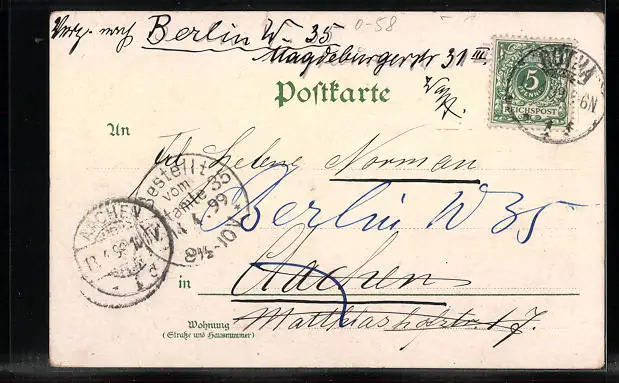 Berlin W. 35
Magdeburgerstr 31 III
0-58
5
REICHSPOST
Postkarte
An
Frl Helene Norman
Bestellt
vom
Postamte 35
14 4 99
8½-10V
AACHEN
13 4 99
Berlin W 35
in Aachen
Wohnung
(Straße und Hausnummer)
Matthiashofstr. 17.